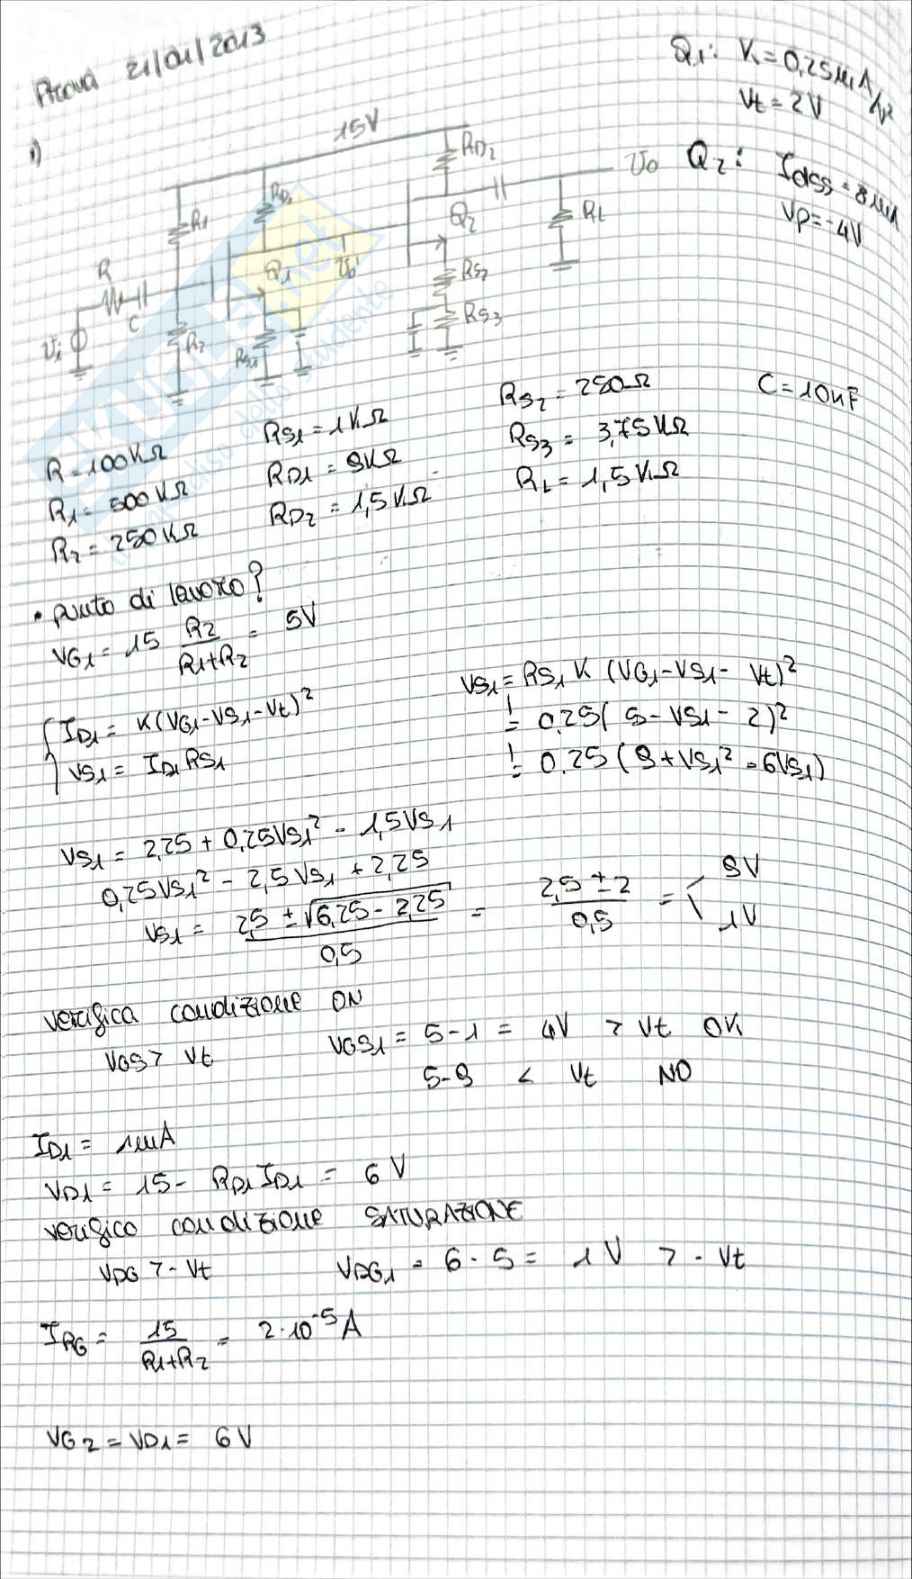 Prova 21/01/2013
Q1: K = 0,25 mA/V²
Vt = 2V
1)
15V
RD2
Vo
Q2: Idss = 8mA
Vp = -4V
R1
RD1
Q2
RL
R
Q1
Vo'
RS2
C
RS3
Vi
R2
RS1
R = 100KΩ
RS1 = 1KΩ
RS2 = 250Ω
C = 10nF
R1 = 500KΩ
RD1 = 9KΩ
RS3 = 3,75KΩ
R2 = 250KΩ
RD2 = 1,5KΩ
RL = 1,5KΩ
• punto di lavoro?
VG1 = 15 R2/(R1+R2) = 5V
{ ID1 = K(VG1-VS1-Vt)²
VS1 = ID1 RS1
VS1 = RS1 K (VG1-VS1- Vt)²
= 0,25( 5-VS1- 2)²
= 0,25 (9+VS1² - 6VS1)
VS1 = 2,25 + 0,25VS1² - 1,5VS1
0,25VS1² - 2,5VS1 + 2,25
VS1 = (2,5 ± √(6,25 - 2,25))/0,5 = (2,5 ± 2)/0,5 = < 9V
1V
verifica condizione ON
VGS > Vt
VGS1 = 5-1 = 4V > Vt OK
5-9 < Vt NO
ID1 = 1mA
VD1 = 15- RD1 ID1 = 6V
verifico condizione SATURAZIONE
VDG > -Vt
VDG1 = 6-5 = 1V > -Vt
IRG = 15/(R1+R2) = 2·10⁻⁵A
VG2 = VD1 = 6V